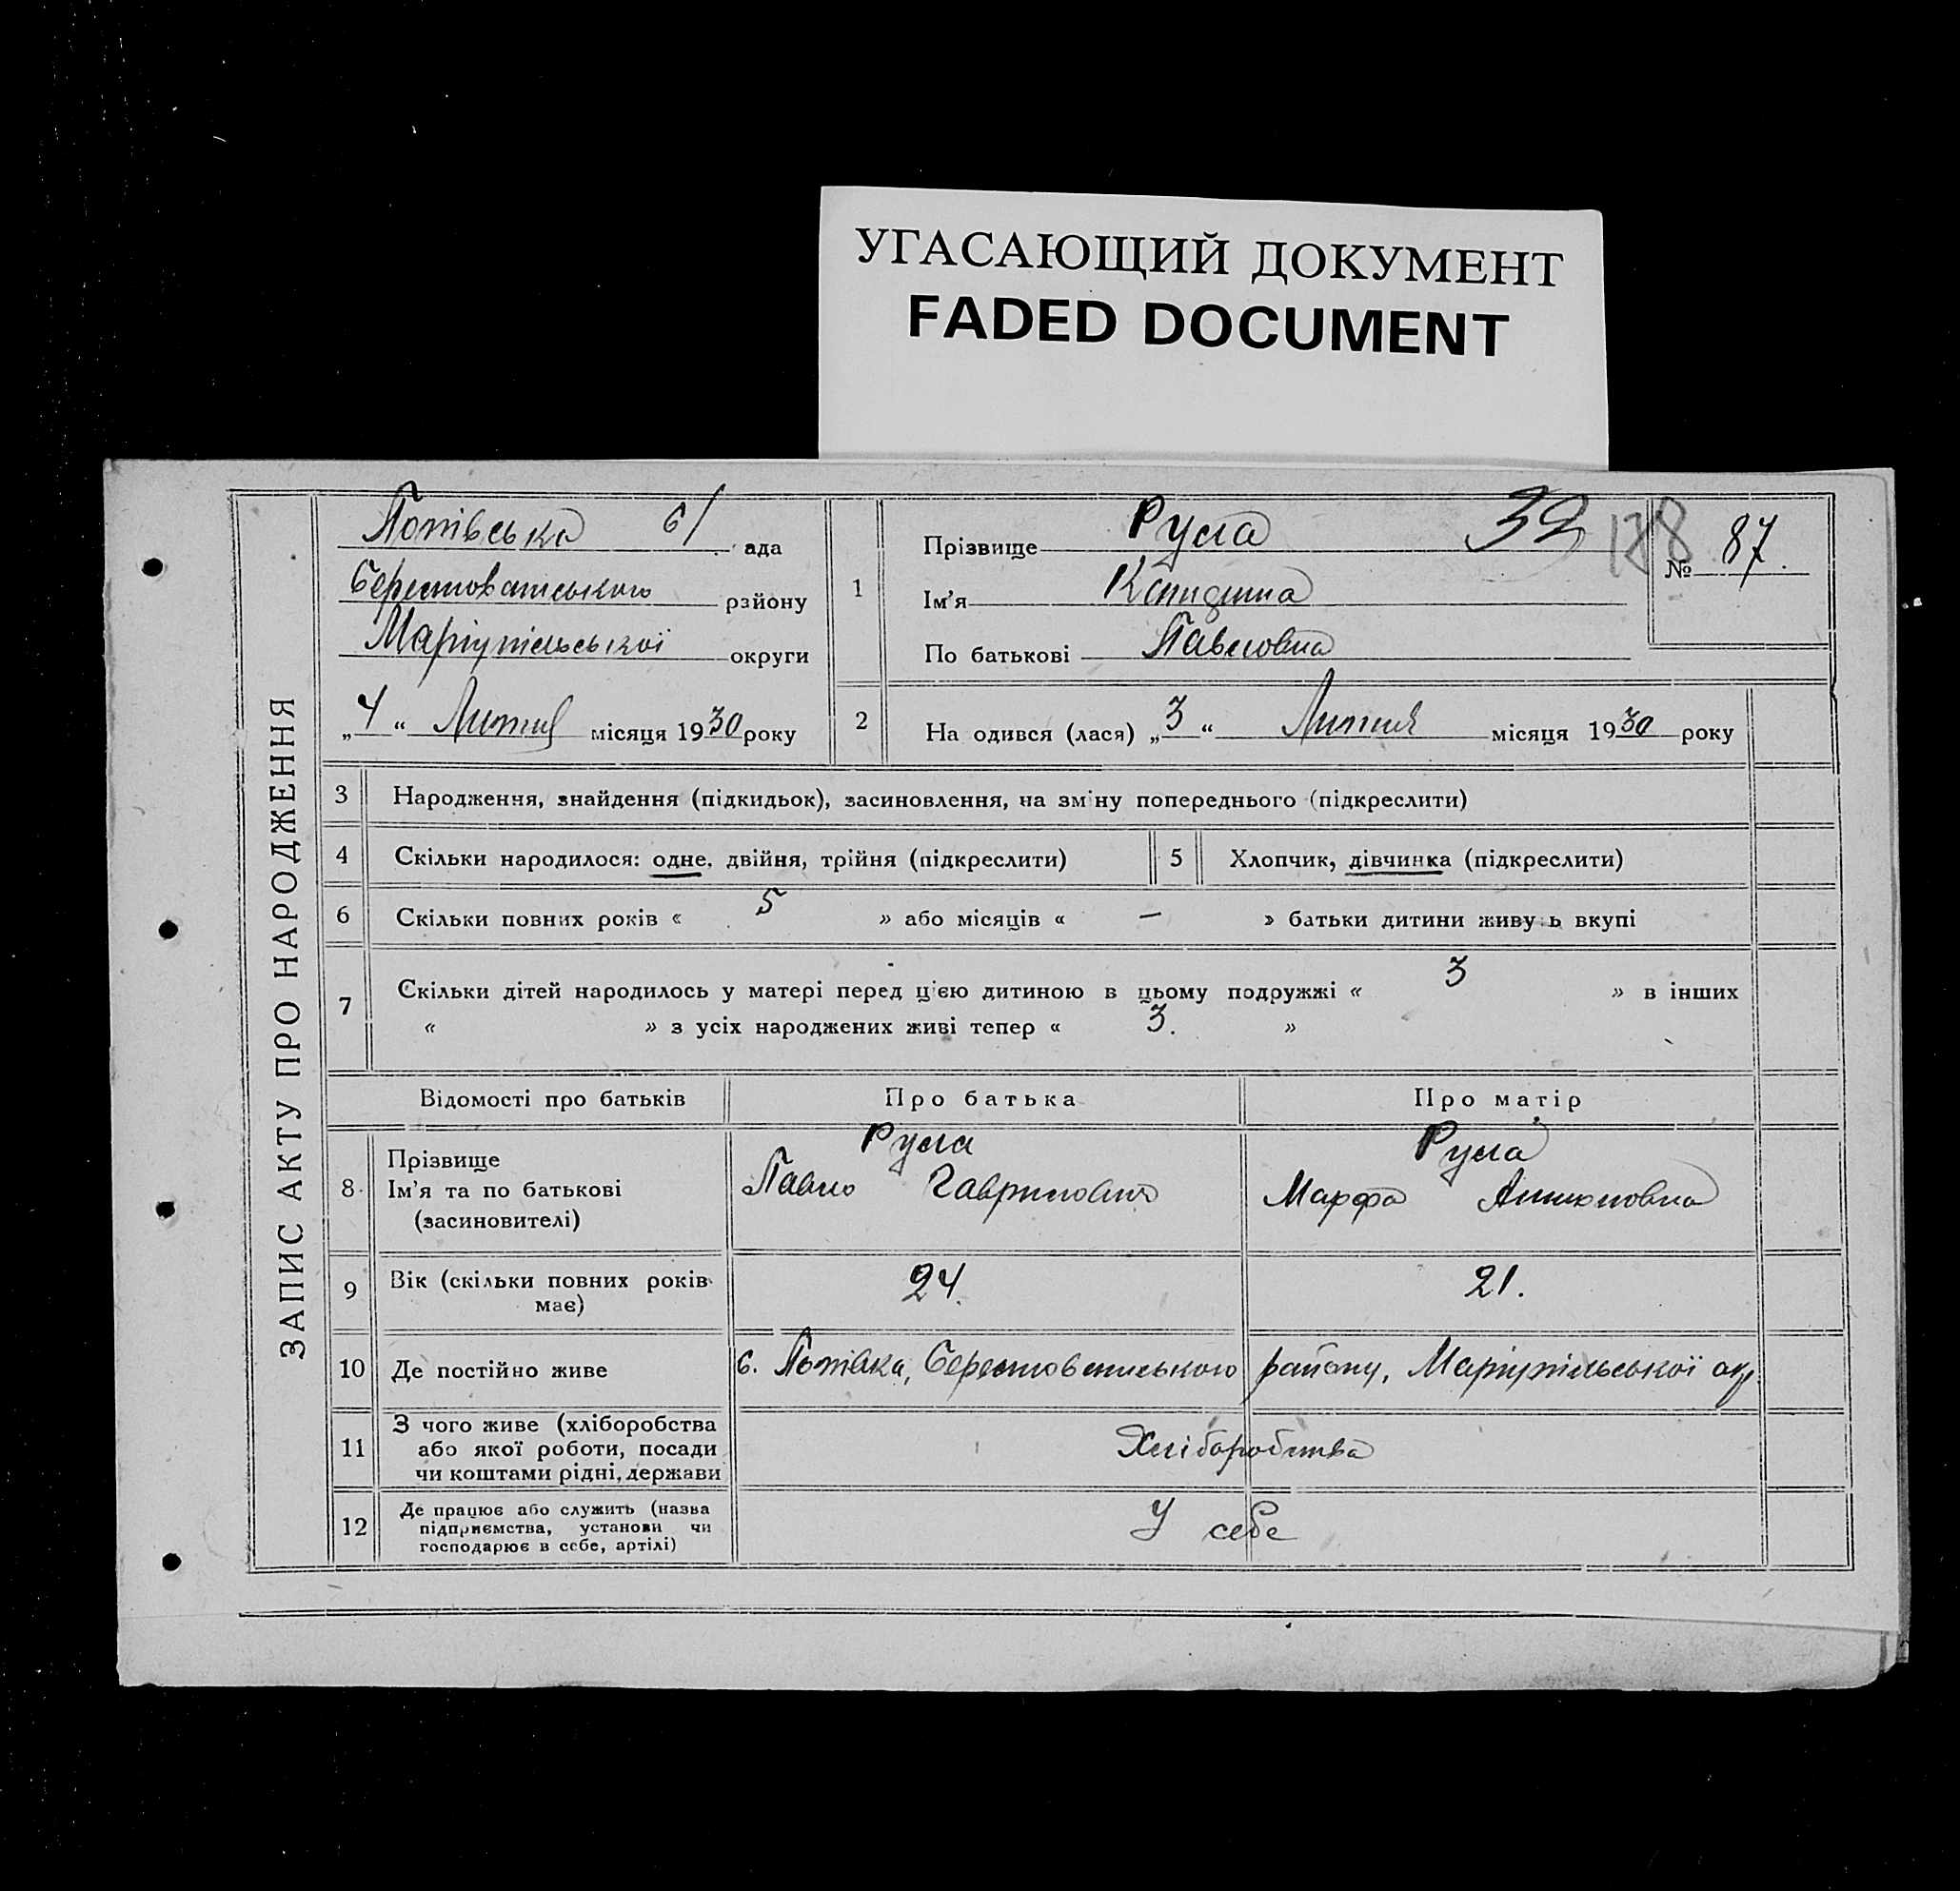 УГАСАЮЩИЙ ДОКУМЕНТ
FADED DOCUMENT
ЗАПИС АКТУ ПРО НАРОДЖЕННЯ
Попівська с/ ада
Берестоватського району
Маріупільської округи
„4“ Лютня місяця 1930 року
1
Прізвище Руса
39
188
№ 87.
Ім’я
По батькові Павловна
2
На одився (лася) „3“ Лютня місяця 1930 року
3 Народження, знайдення (підкидьок), засиновлення, на зміну попереднього (підкреслити)
4 Скільки народилося: одне, двійня, трійня (підкреслити)
5 Хлопчик, дівчинка (підкреслити)
6 Скільки повних років « 5 » або місяців « — » батьки дитини живу ь вкупі
7 Скільки дітей народилось у матері перед цією дитиною в цьому подружжі « 3 » в інших
« » з усіх народжених живі тепер « 3. »
Відомості про батьків Про батька Про матір
8
Прізвище
Ім’я та по батькові
(засиновителі)
Руса
Павло Гаврилович
Руса
Марфа Антоновна
9 Вік (скільки повних років
має)
24.
21.
10 Де постійно живе
с. Попівка, Берестоватського району, Маріупільської окр
11
З чого живе (хліборобства
або якої роботи, посади
чи коштами рідні, держави
Хліборобства
12
Де працює або служить (назва
підприємства, установи чи
господарює в себе, артілі)
У себе